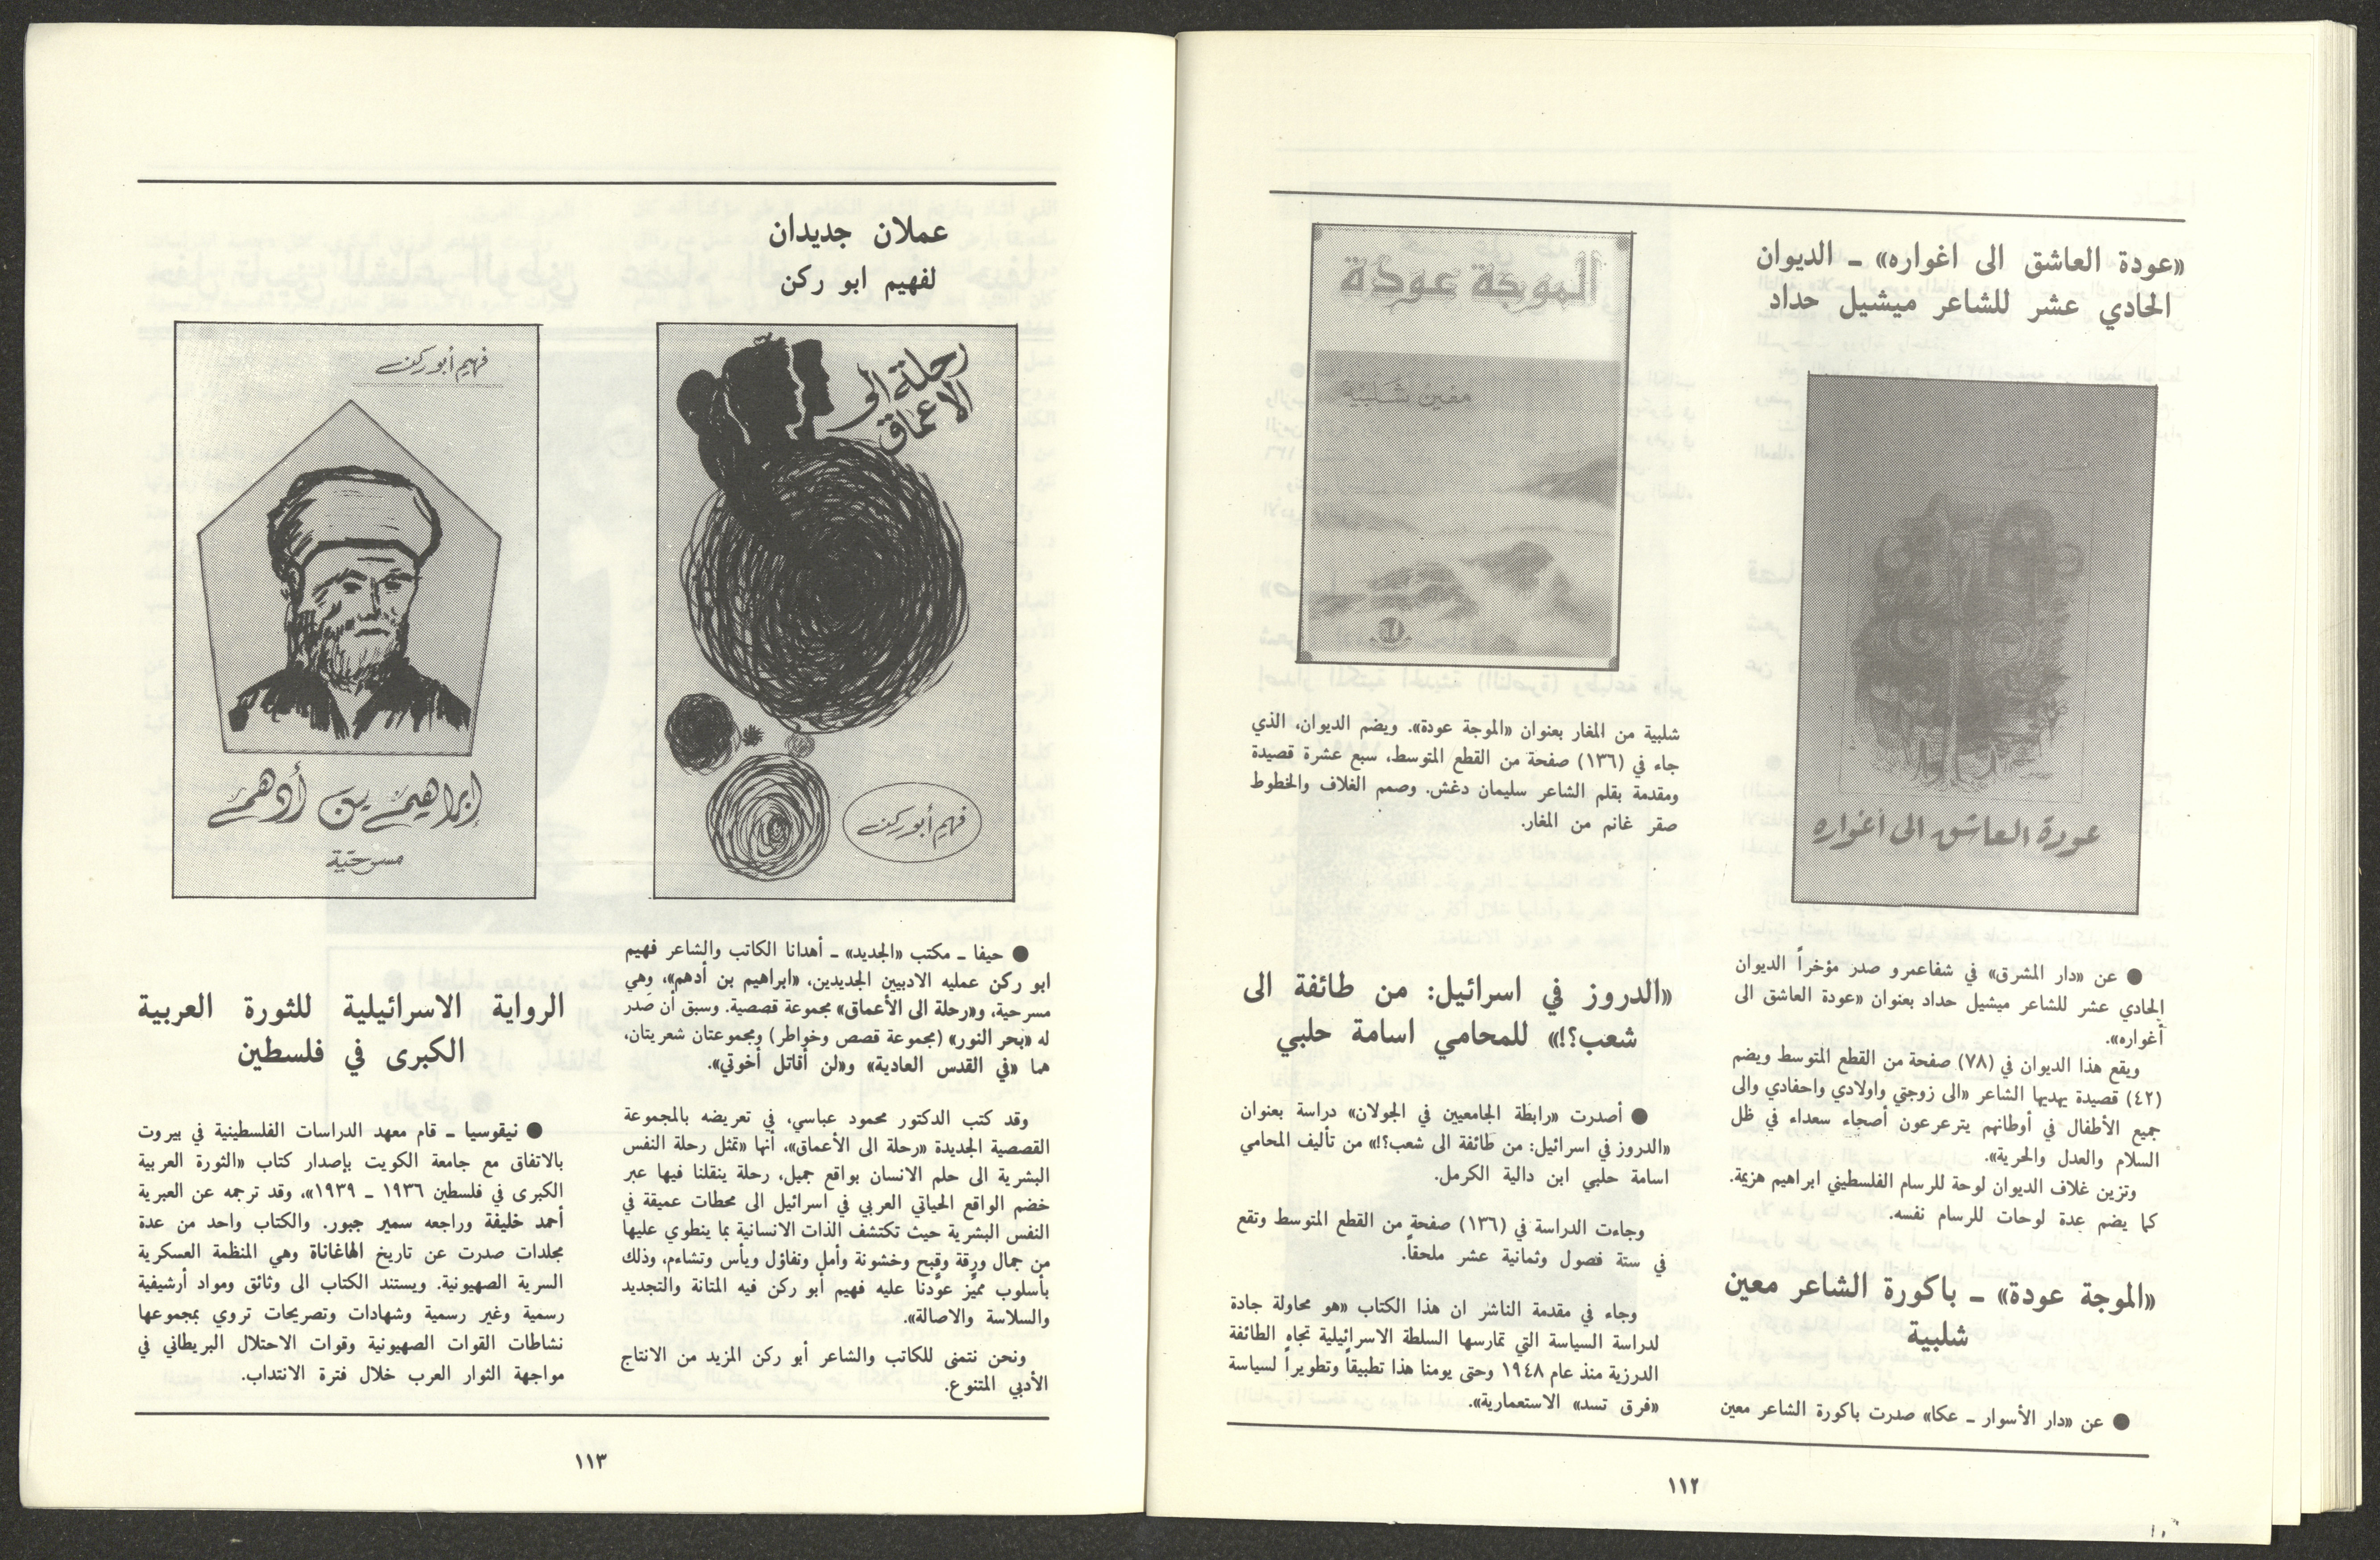 «عودة العاشق الى اغواره» ــ الديوان
الحادي عشر للشاعر ميشيل حداد
عودة العاشق الى أغواره
● عن «دار المشرق» في شفاعمرو صدر مؤخراً الديوان
الحادي عشر للشاعر ميشيل حداد بعنوان «عودة العاشق الى
أغواره».
ويقع هذا الديوان في (٧٨) صفحة من القطع المتوسط ويضم
(٤٢) قصيدة يهديها الشاعر «الى زوجتي واولادي واحفادي والى
جميع الأطفال في أوطانهم يترعرعون أصحاء سعداء في ظل
السلام والعدل والحرية».
وتزين غلاف الديوان لوحة للرسام الفلسطيني ابراهيم هزيمة.
كما يضم عدة لوحات للرسام نفسه.
«الموجة عودة» ــ باكورة الشاعر معين
شلبية
● عن «دار الأسوار ــ عكا» صدرت باكورة الشاعر معين
الموجة عودة
معين شلبية
شلبية من المغار بعنوان «الموجة عودة». ويضم الديوان، الذي
جاء في (١٣٦) صفحة من القطع المتوسط، سبع عشرة قصيدة
ومقدمة بقلم الشاعر سليمان دغش. وصمم الغلاف والخطوط
صقر غانم من المغار.
«الدروز في اسرائيل: من طائفة الى
شعب؟!» للمحامي اسامة حلبي
● أصدرت «رابطة الجامعيين في الجولان» دراسة بعنوان
«الدروز في اسرائيل: من طائفة الى شعب؟!» من تأليف المحامي
اسامة حلبي ابن دالية الكرمل.
وجاءت الدراسة في (١٣٦) صفحة من القطع المتوسط وتقع
في ستة فصول وثمانية عشر ملحقاً.
وجاء في مقدمة الناشر ان هذا الكتاب «هو محاولة جادة
لدراسة السياسة التي تمارسها السلطة الاسرائيلية تجاه الطائفة
الدرزية منذ عام ١٩٤٨ وحتى يومنا هذا تطبيقاً وتطويراً لسياسة
«فرق تسد» الاستعمارية».
١١٢
عملان جديدان
لفهيم ابو ركن
رحلة الى
الاعماق
فهيم أبو ركن
فهيم أبو ركن
إبراهيم بن أدهم
مسرحية
● حيفا ــ مكتب «الجديد» ــ أهدانا الكاتب والشاعر فهيم
ابو ركن عمليه الادبيين الجديدين، «ابراهيم بن أدهم»، وهي
مسرحية، و«رحلة الى الأعماق» مجموعة قصصية. وسبق أن صَدر
له «بحر النور» (مجموعة قصص وخواطر) ومجموعتان شعريتان،
هما «في القدس العادية» و«لن أقاتل أخوتي».
وقد كتب الدكتور محمود عباسي، في تعريضه بالمجموعة
القصصية الجديدة «رحلة الى الأعماق»، أنها «تمثل رحلة النفس
البشرية الى حلم الانسان بواقع جميل، رحلة ينقلنا فيها عبر
خضم الواقع الحياتي العربي في اسرائيل الى محطات عميقة في
النفس البشرية حيث تكتشف الذات الانسانية بما ينطوي عليها
من جمال ورقة وقبح وخشونة وأمل وتفاؤل ويأس وتشاءم، وذلك
بأسلوب مميّز عوّدنا عليه فهيم أبو ركن فيه المتانة والتجديد
والسلاسة والاصالة».
ونحن نتمنى للكاتب والشاعر أبو ركن المزيد من الانتاج
الأدبي المتنوع.
الرواية الاسرائيلية للثورة العربية
الكبرى في فلسطين
● نيقوسيا ــ قام معهد الدراسات الفلسطينية في بيروت
بالاتفاق مع جامعة الكويت بإصدار كتاب «الثورة العربية
الكبرى في فلسطين ١٩٣٦ ــ ١٩٣٩»، وقد ترجمه عن العبرية
أحمد خليفة وراجعه سمير جبور. والكتاب واحد من عدة
مجلدات صدرت عن تاريخ الهاغاناة وهي المنظمة العسكرية
السرية الصهيونية. ويستند الكتاب الى وثائق ومواد أرشيفية
رسمية وغير رسمية وشهادات وتصريحات تروي بمجموعها
نشاطات القوات الصهيونية وقوات الاحتلال البريطاني في
مواجهة الثوار العرب خلال فترة الانتداب.
١١٣